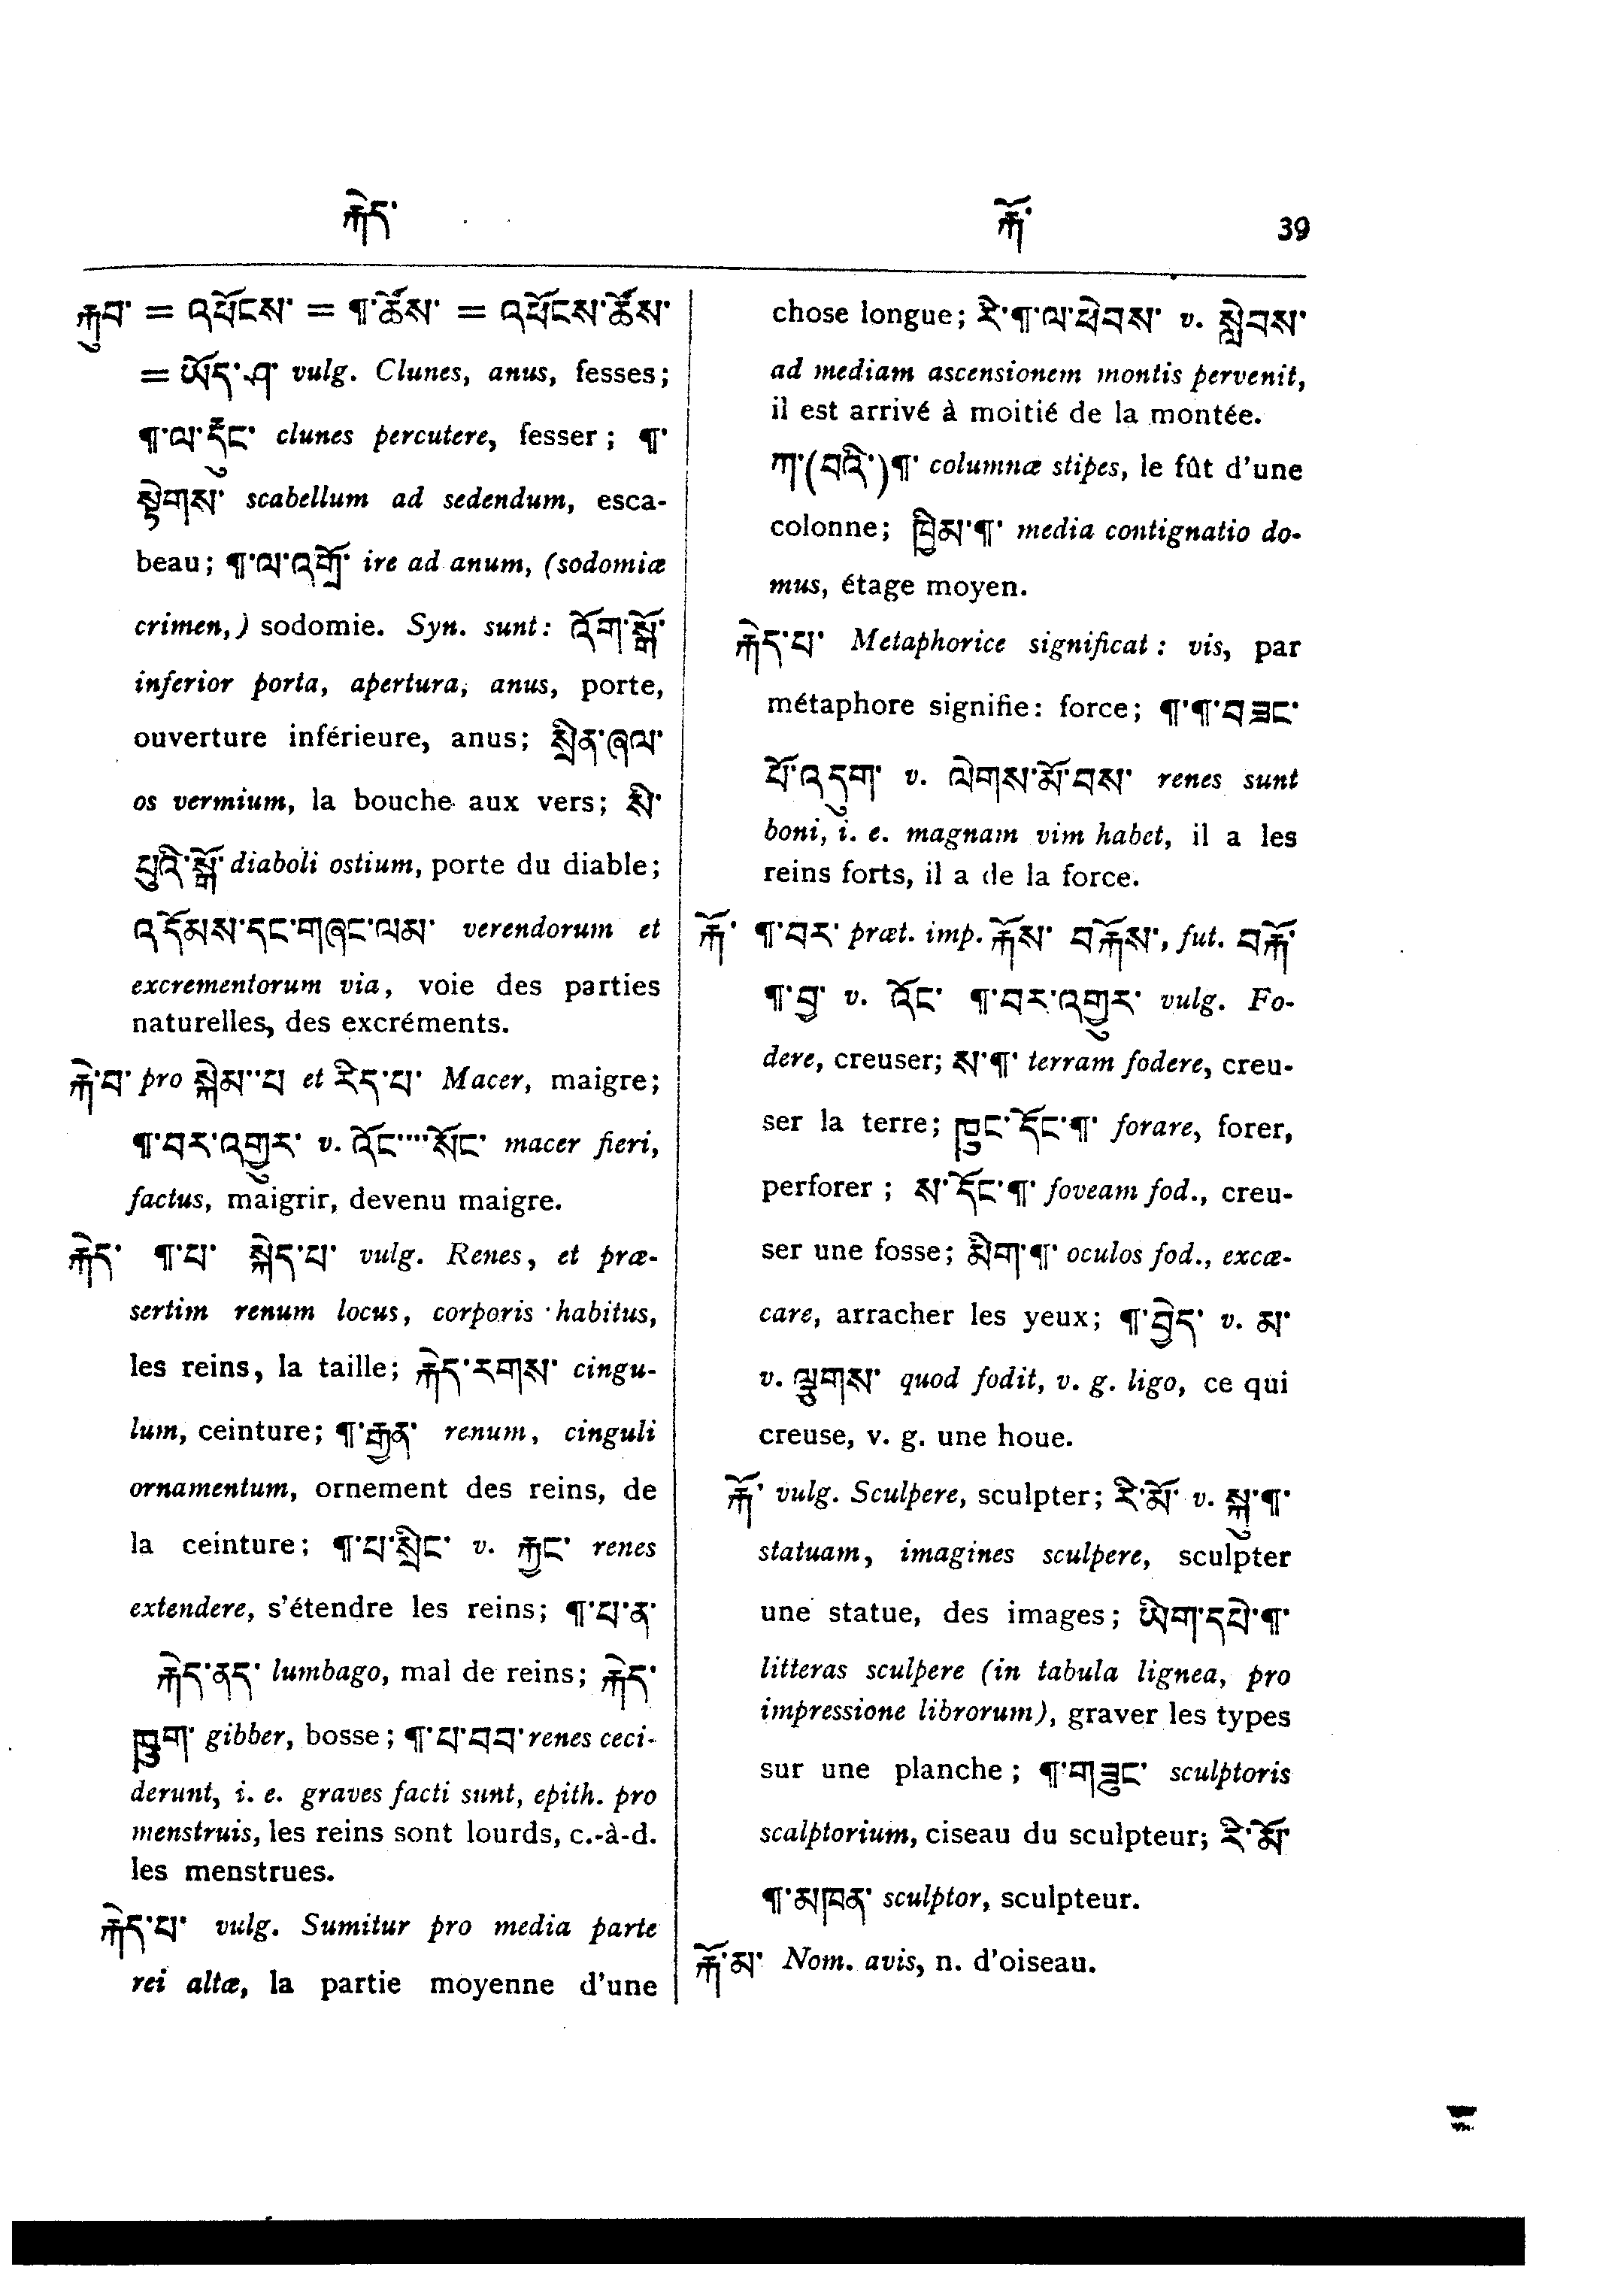 རྐེད་
རྐོ་ 39
རྐུབ་ = འཕོངས་ = ¶་ཚོས་ = འཕོངས་ཚོས་
= ཨོད་ཤ་ vulg. Clunes, anus, fesses;
¶་ལ་རྡུང་ clunes percutere, fesser; ¶་
སྟེགས་ scabellum ad sedendum, esca-
beau; ¶་ལ་འགྲོ་ ire ad anum, (sodomiæ
crimen,) sodomie. Syn. sunt: འོག་སྒོ་
inferior porta, apertura, anus, porte,
ouverture inférieure, anus; སྲིན་ཞལ་
os vermium, la bouche aux vers; སྲི་
པུའི་སྒོ་ diaboli ostium, porte du diable;
འདོམས་དང་གཞང་ལམ་ verendorum et
excrementorum via, voie des parties
naturelles, des excréments.
རྐེ་བ་ pro སྐེམ་་པ et རིད་པ་ Macer, maigre;
¶་བར་འགྱུར་ v. འོང་་་་སོང་ macer fieri,
factus, maigrir, devenu maigre.
རྐེད་ ¶་པ་ སྐེད་པ་ vulg. Renes, et præ-
sertim renum locus, corporis habitus,
les reins, la taille; རྐེད་རགས་ cingu-
lum, ceinture; ¶་རྒྱན་ renum, cinguli
ornamentum, ornement des reins, de
la ceinture; ¶་པ་སྲིང་ v. རྐྱང་ renes
extendere, s'étendre les reins; ¶་པ་ན་
རྐེད་ནད་ lumbago, mal de reins; རྐེད་
ཁྲུག་ gibber, bosse; ¶་པ་བབ་ renes ceci-
derunt, i. e. graves facti sunt, epith. pro
menstruis, les reins sont lourds, c.-à-d.
les menstrues.
རྐེད་པ་ vulg. Sumitur pro media parte
rei altæ, la partie moyenne d'une
chose longue; རི་¶་ལ་ཕེབས་ v. སླེབས་
ad mediam ascensionem montis pervenit,
il est arrivé à moitié de la montée.
ཀ་(བའི་)¶་ columnæ stipes, le fût d'une
colonne; ཁྱིམ་¶་ media contignatio do-
mus, étage moyen.
རྐེད་པ་ Metaphorice significat: vis, par
métaphore signifie: force; ¶་¶་བཟང་
པོ་འདུག་ v. ལེགས་མོ་བས་ renes sunt
boni, i. e. magnam vim habet, il a les
reins forts, il a de la force.
རྐོ་ ¶་བར་ præt. imp. རྐོས་ བརྐོས་, fut. བརྐོ་
¶་བྱ་ v. འོང་ ¶་བར་འགྱུར་ vulg. Fo-
dere, creuser; ས་¶་ terram fodere, creu-
ser la terre; ཁུང་དོང་¶་ forare, forer,
perforer; ས་དོང་¶་ foveam fod., creu-
ser une fosse; མིག་¶་ oculos fod., excæ-
care, arracher les yeux; ¶་བྱེད་ v. མ་
v. ལྕགས་ quod fodit, v. g. ligo, ce qui
creuse, v. g. une houe.
རྐོ་ vulg. Sculpere, sculpter; རི་མོ་ v. སྐུ་¶་
statuam, imagines sculpere, sculpter
une statue, des images; ཡིག་དཔེ་¶་
litteras sculpere (in tabula lignea, pro
impressione librorum), graver les types
sur une planche; ¶་གཟུང་ sculptoris
scalptorium, ciseau du sculpteur; རི་མོ་
¶་མཁན་ sculptor, sculpteur.
རྐོ་མ་ Nom. avis, n. d'oiseau.